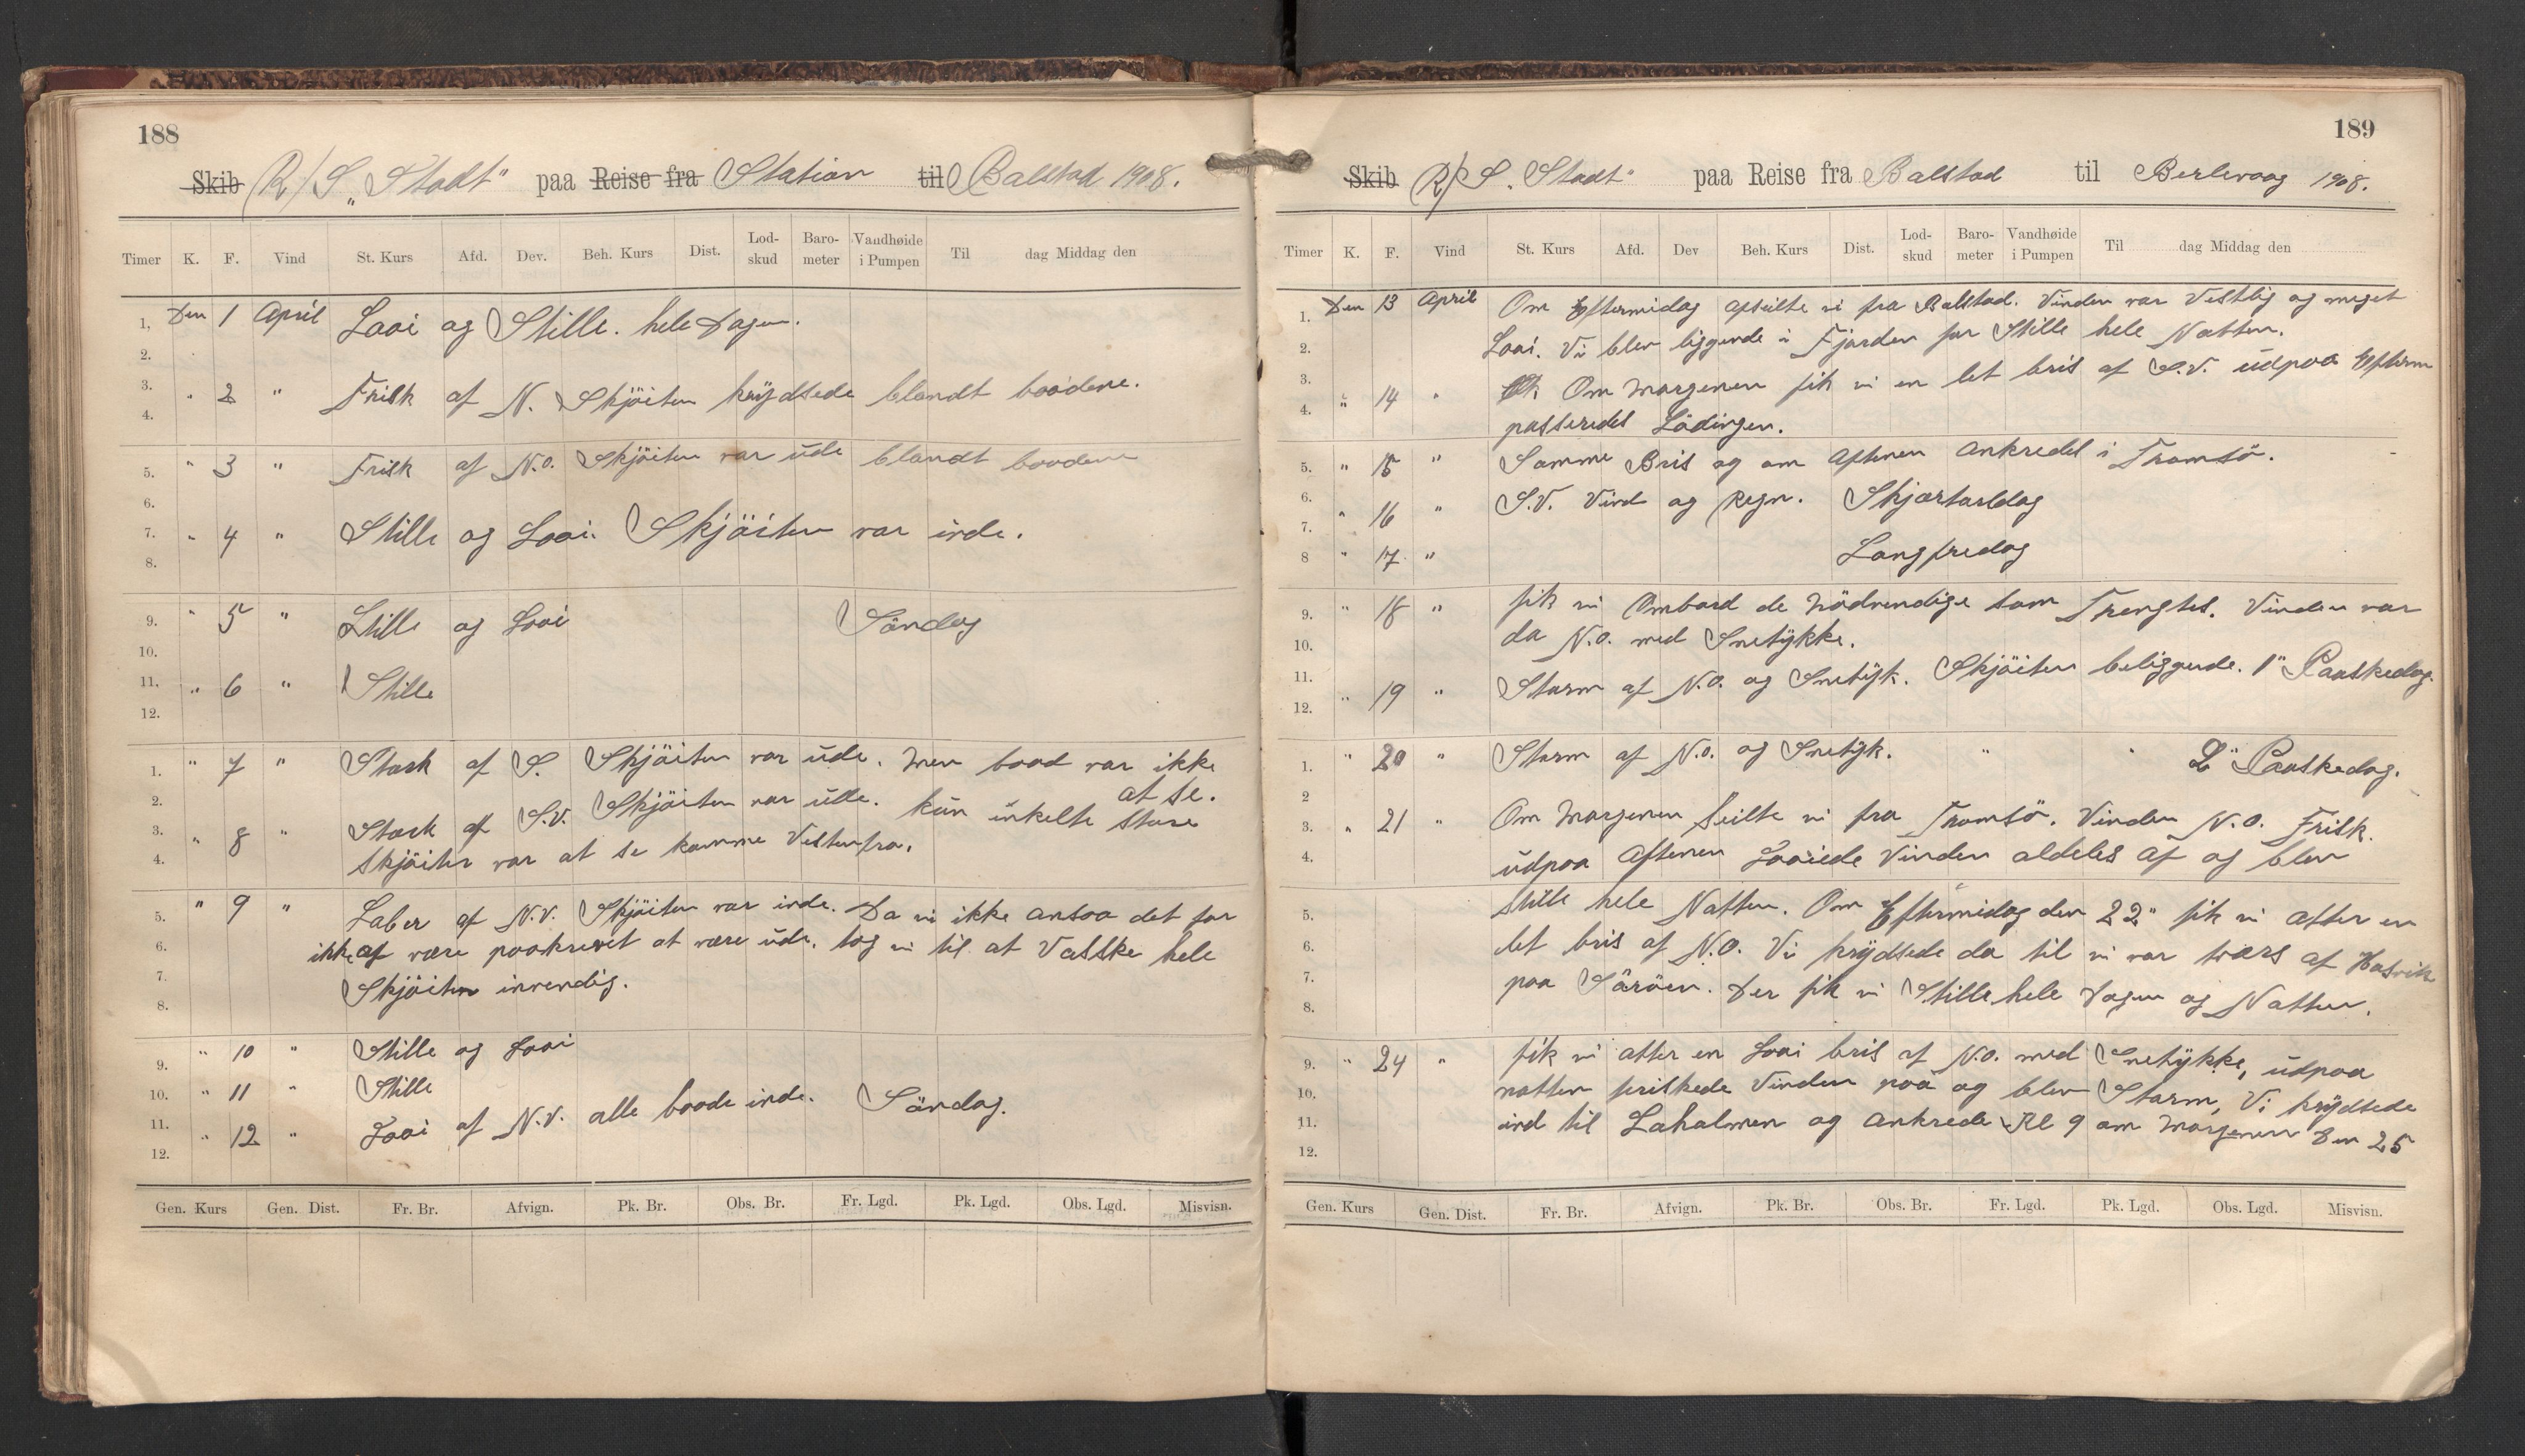 188
Skib R/S „Stadt" paa Reise fra Station til Balstad 1908.
Timer K. F. Vind St. Kurs Afd. Dev. Beh. Kurs Dist. Lod-skud Baro-meter Vandhøide i Pumpen Til dag Middag den
1. Den 1 April Laai og Stille. hele Dagen.
2.
3. " 2 " Frisk af N. Skjöiten krydsede blandt baadene.
4.
5. " 3 " Frisk af N.O. Skjöiten var ude blandt baadene
6.
7. " 4 " Stille og Laai. Skjöiten var inde.
8.
9. " 5 " Stille og Laai Söndag
10.
11. " 6 " Stille
12.
1. " 7 " Stærk af S. Skjöiten var ude. Men baad var ikke
at se.
2.
3. " 8 " Stærk af S.V. Skjöiten var ude. kun enkelte Store
4. Skjöiter var at se komme Vestenfra.
5. " 9 " Laber af N.V. Skjöiten var inde. Da vi ikke ansaa det for
6. ikke af være paakrevet at være ude. tog vi til at Vasske hele
7. Skjöiten invendig.
8.
9. " 10 " Stille og Laai
10. " 11 " Stille
11. " 12 " Laai af N.V. alle baade inde. Söndag.
12.
Gen. Kurs Gen. Dist. Fr. Br. Afvign. Pk. Br. Obs. Br. Fr. Lgd. Pk. Lgd. Obs. Lgd. Misvisn.
189
Skib R/S „Stadt" paa Reise fra Balstad til Berlevaag 1908.
Timer K. F. Vind St. Kurs Afd. Dev Beh. Kurs Dist. Lod-skud Baro-meter Vandhøide i Pumpen Til dag Middag den
1. Den 13 April Om Eftermidag afseilte vi fra Balstad. Vinden var Vestlig og meget
2. Laai. Vi blev liggende i Fjorden for Stille hele Natten.
3. " 14 " Om Morgenen fik vi en let bris af S.V. udpaa Efterm
4. passeredes Lödingen.
5. " 15 " Samme Bris og om Aftenen Ankredes i Tromsö.
6. " 16 " S.V. Vind og Regn. Skjærtorsdag
7.
8 " 17 " Langfredag
9. " 18 " fik vi Ombord de Nödvendige som Trengtes. Vinden var
10. da N.O. med Snetykke.
11. " 19 " Storm af N.O. og Snetyk. Skjöiten beliggende. 1" Paaskedag.
12.
1. " 20 " Storm af N.O. og Snetyk. " " 2" Paaskedag.
2
3. " 21 " Om Morgenen Seilte vi fra Tromsö. Vinden N.O. Frisk.
4. udpaa Aftenen Laaiede Vinden aldeles af og blev
5. stille hele Natten. Om Eftermidag den 22" fik vi atter en
6. let bris af N.O. Vi krydsede da til vi var tvars af Hasvik
7. paa Söröen. Der fik vi Stille hele Dagen og Natten.
8.
9. " 24 " fik vi atter en Laai bris af N.O. med Snetykke, udpaa
10. natten friskede Vinden paa og blev Storm, Vi krydsede
11. ind til Laholmen og Ankrede Kl 9 om Morgenen Den 25
12.
Gen. Kurs Gen. Dist. Fr. Br. Afvign. Pk. Br. Obs. Br. Fr. Lgd. Pk. Lgd. Obs. Lgd. Misvisn.